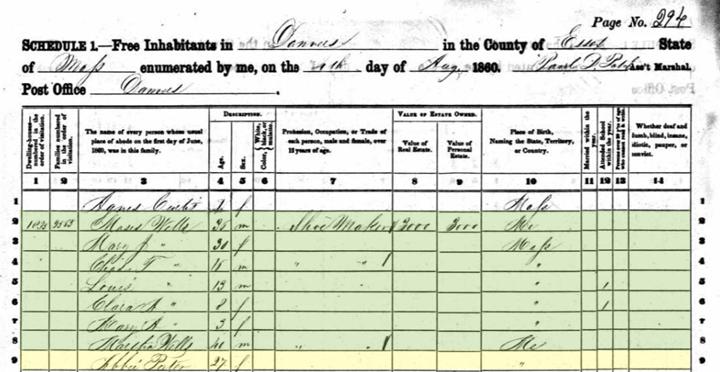 Page No. 294
SCHEDULE 1.—Free Inhabitants in Danvers in the County of Essex State
of Mass enumerated by me, on the day of Aug, 1860. Ass't Marshal.
Post Office Danvers
Dwelling-houses—numbered in the order of visitation.
Families numbered in the order of visitation.
The name of every person whose usual place of abode on the first day of June, 1860, was in this family.
DESCRIPTION.
Age.
Sex.
Color, White, black, or mulatto.
Profession, Occupation, or Trade of each person, male and female, over 15 years of age.
VALUE OF ESTATE OWNED.
Value of Real Estate.
Value of Personal Estate.
Place of Birth, Naming the State, Territory, or Country.
Married within the year.
Attended School within the year.
Whether deaf and dumb, blind, insane, idiotic, pauper, or convict.
1 2 3 4 5 6 7 8 9 10 11 12 13 14
1 Agnes f Mass 1
2 Moses Wells m Shoe Maker 3000 3000 Me 2
3 Mary J " 30 f Mass 3
4 F " m " " / " 4
5 Louis " 13 m " / 5
6 Clara A " 8 f " / 6
7 Mary A " 3 f " 7
8 Wells m " " / Me 8
9 Abbie Porter 27 f " 9